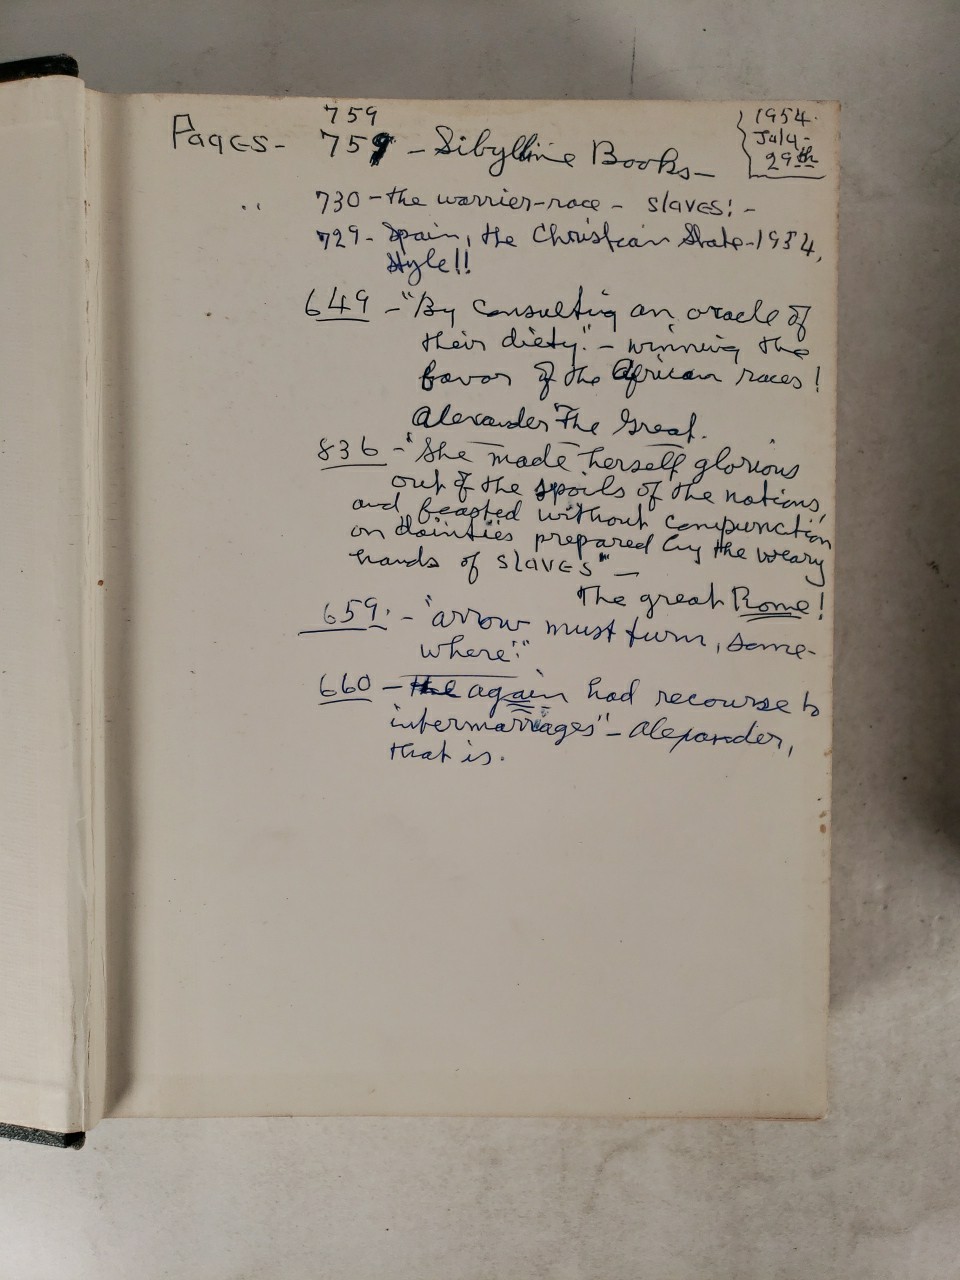 759
1954.
July-
29th
Pages- 759 - Sibylline Books-
730 - the warrier-race - slaves! -
729- Spain, the Christian State-1954,
style!!
649 - "By consulting an oracle of
their diety." - winning the
favor of the African races!
Alexander The Great.
836 - "She made herself glorious
out of the spoils of the nations,
and feasted without compunction
on dainties prepared by the weary
hands of slaves" -
The great Rome!
659. - "arrow must turn, some-
where."
660 - again had recourse to
intermarriages" - Alexander,
that is.